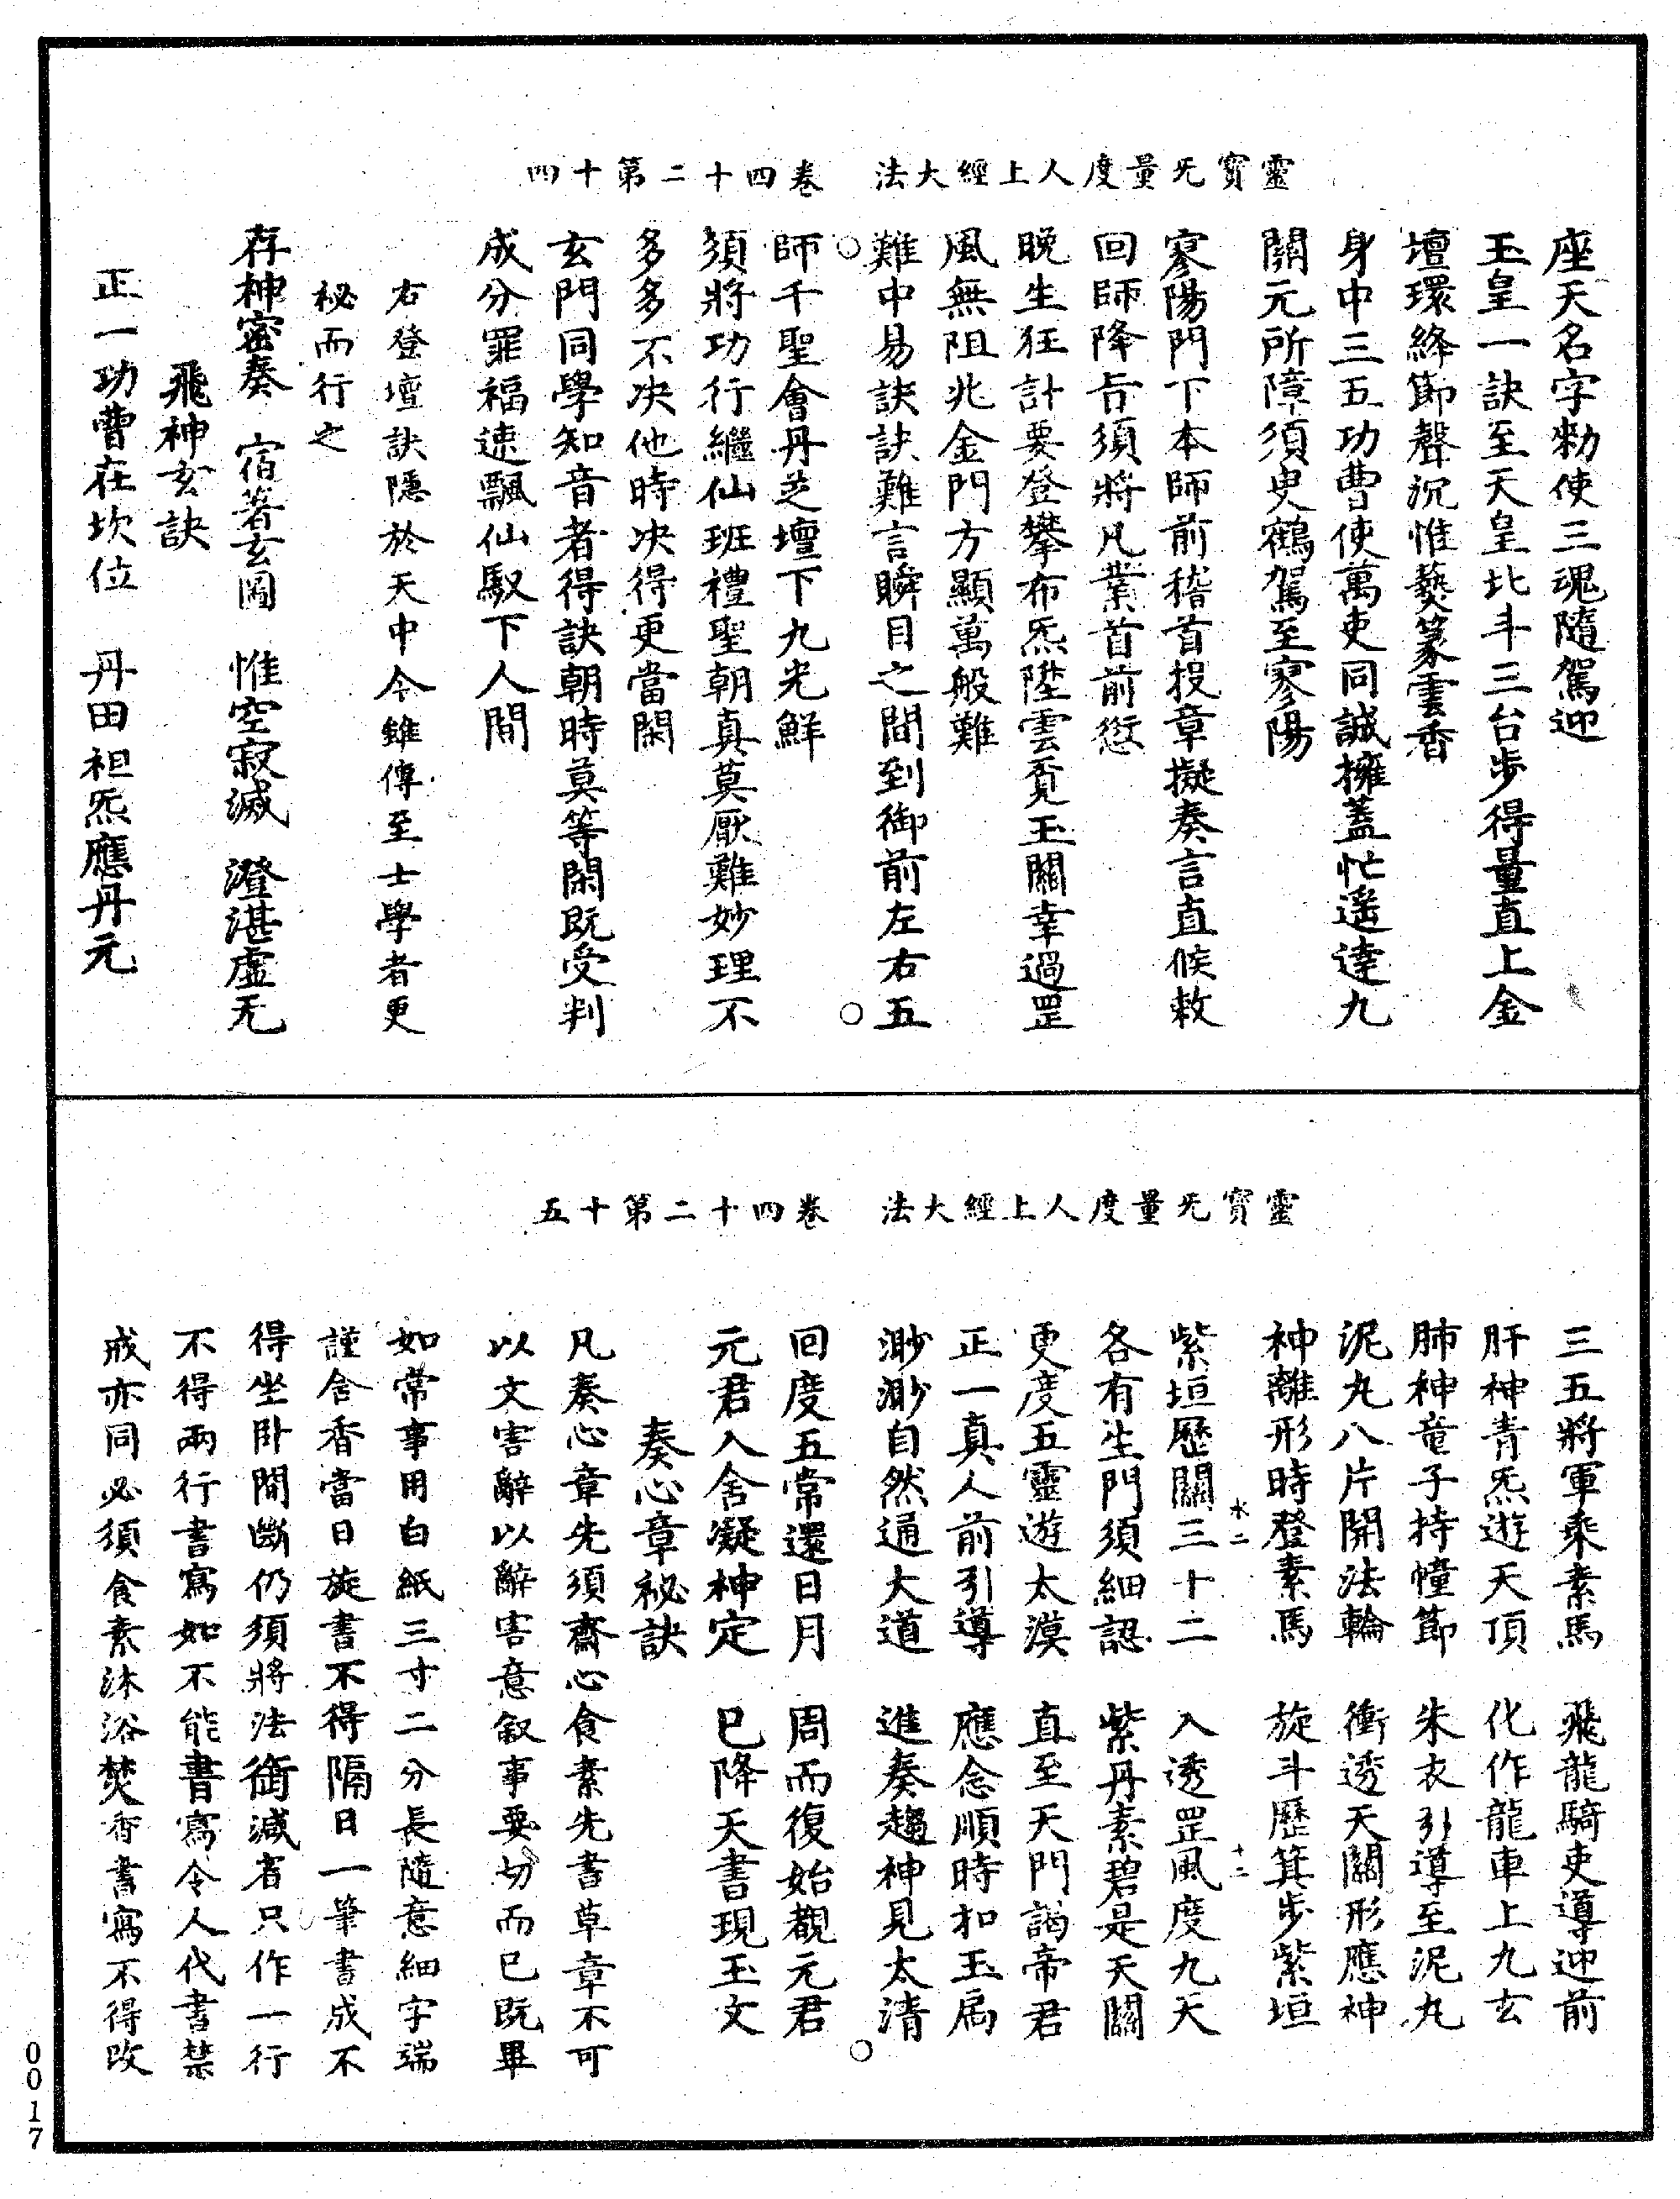 靈寶旡量度人上經大法　卷四十二第十四
座天名字勑使三魂隨駕迎
玉皇一訣至天皇北斗三台步得量直上金
壇環絳節聲沉惟爇篆雲香
身中三五功曹使萬吏同誠擁蓋忙遙達九
關元所障須臾鶴駕至寥陽
寥陽門下本師前稽首投章擬奏言直候敕
回師降吉須將凡業首前愆
晚生狂計要登攀布炁陞雲覔玉關幸過罡
風無阻兆金門方顯萬般難
難中易訣訣難言瞬目之間到御前左右五
師千聖會丹芝壇下九光鮮
須將功行繼仙班禮聖朝真莫厭難妙理不
多多不决他時决得更當閑
玄門同學知音者得訣朝時莫等閑既受判
成分罪福速飄仙馭下人間
右登壇訣隱於天中令雖傳至士學者更
祕而行之
存神密奏　宿著玄圖　惟空寂滅　澄湛虛无
飛神玄訣
正一功曹在坎位　丹田祖炁應丹元
靈寶旡量度人上經大法　卷四十二第十五
三五將軍乘素馬　飛龍騎吏導迎前
肝神青炁遊天頂　化作龍車上九玄
肺神童子持幢節　朱衣引導至泥丸
泥丸八片開法輪　衝透天關形應神
神離形時登素馬　旋斗歷箕步紫垣
水二　十二
紫垣歷關三十二　入透罡風度九天
各有生門須細認　紫丹素碧是天關
更度五靈遊太漠　直至天門謁帝君
正一真人前引導　應念順時扣玉扃
渺渺自然通大道　進奏趨神見太清
回度五常還日月　周而復始觀元君
元君入舍凝神定　已降天書現玉文
奏心章祕訣
凡奏心章先須齋心食素先書草章不可
以文害辭以辭害意叙事要切而已既畢
如常事用白紙三寸二分長隨意細字端
謹含香當日旋書不得隔日一筆書成不
得坐卧間斷仍須將法銜減省只作一行
不得兩行書寫如不能書寫令人代書禁
戒亦同必須食素沐浴焚香書寫不得改
0017